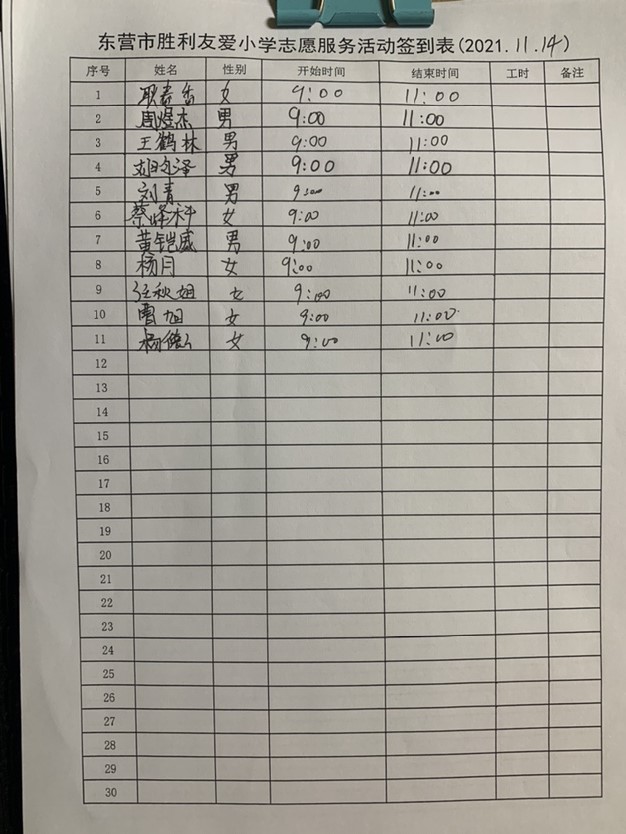 东营市胜利友爱小学志愿服务活动签到表(2021.11.14)
序号 姓名 性别 开始时间 结束时间 工时 备注
1 耿春香 女 9:00 11:00
2 周煜杰 男 9:00 11:00
3 王鹤林 男 9:00 11:00
4 男 9:00 11:00
5 刘青 男 9:00 11:00
6 女 9:00 11:00
7 黄铠威 男 9:00 11:00
8 杨月 女 9:00 11:00
9 任秋妲 女 9:00 11:00
10 曹旭 女 9:00 11:00
11 女 9:00 11:00
12
13
14
15
16
17
18
19
20
21
22
23
24
25
26
27
28
29
30